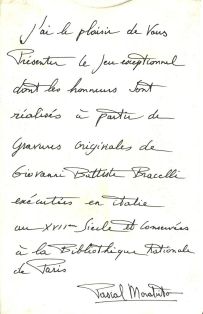 J'ai le plaisir de vous
Présenter le jeu exceptionnel
dont les honneurs sont
réalisés à partir de
Gravures originales de
Giovanni Battista Bracelli
exécutées en Italie
au XVIIème Siècle et conservées
à la Bibliothèque Nationale
de Paris
Pascal